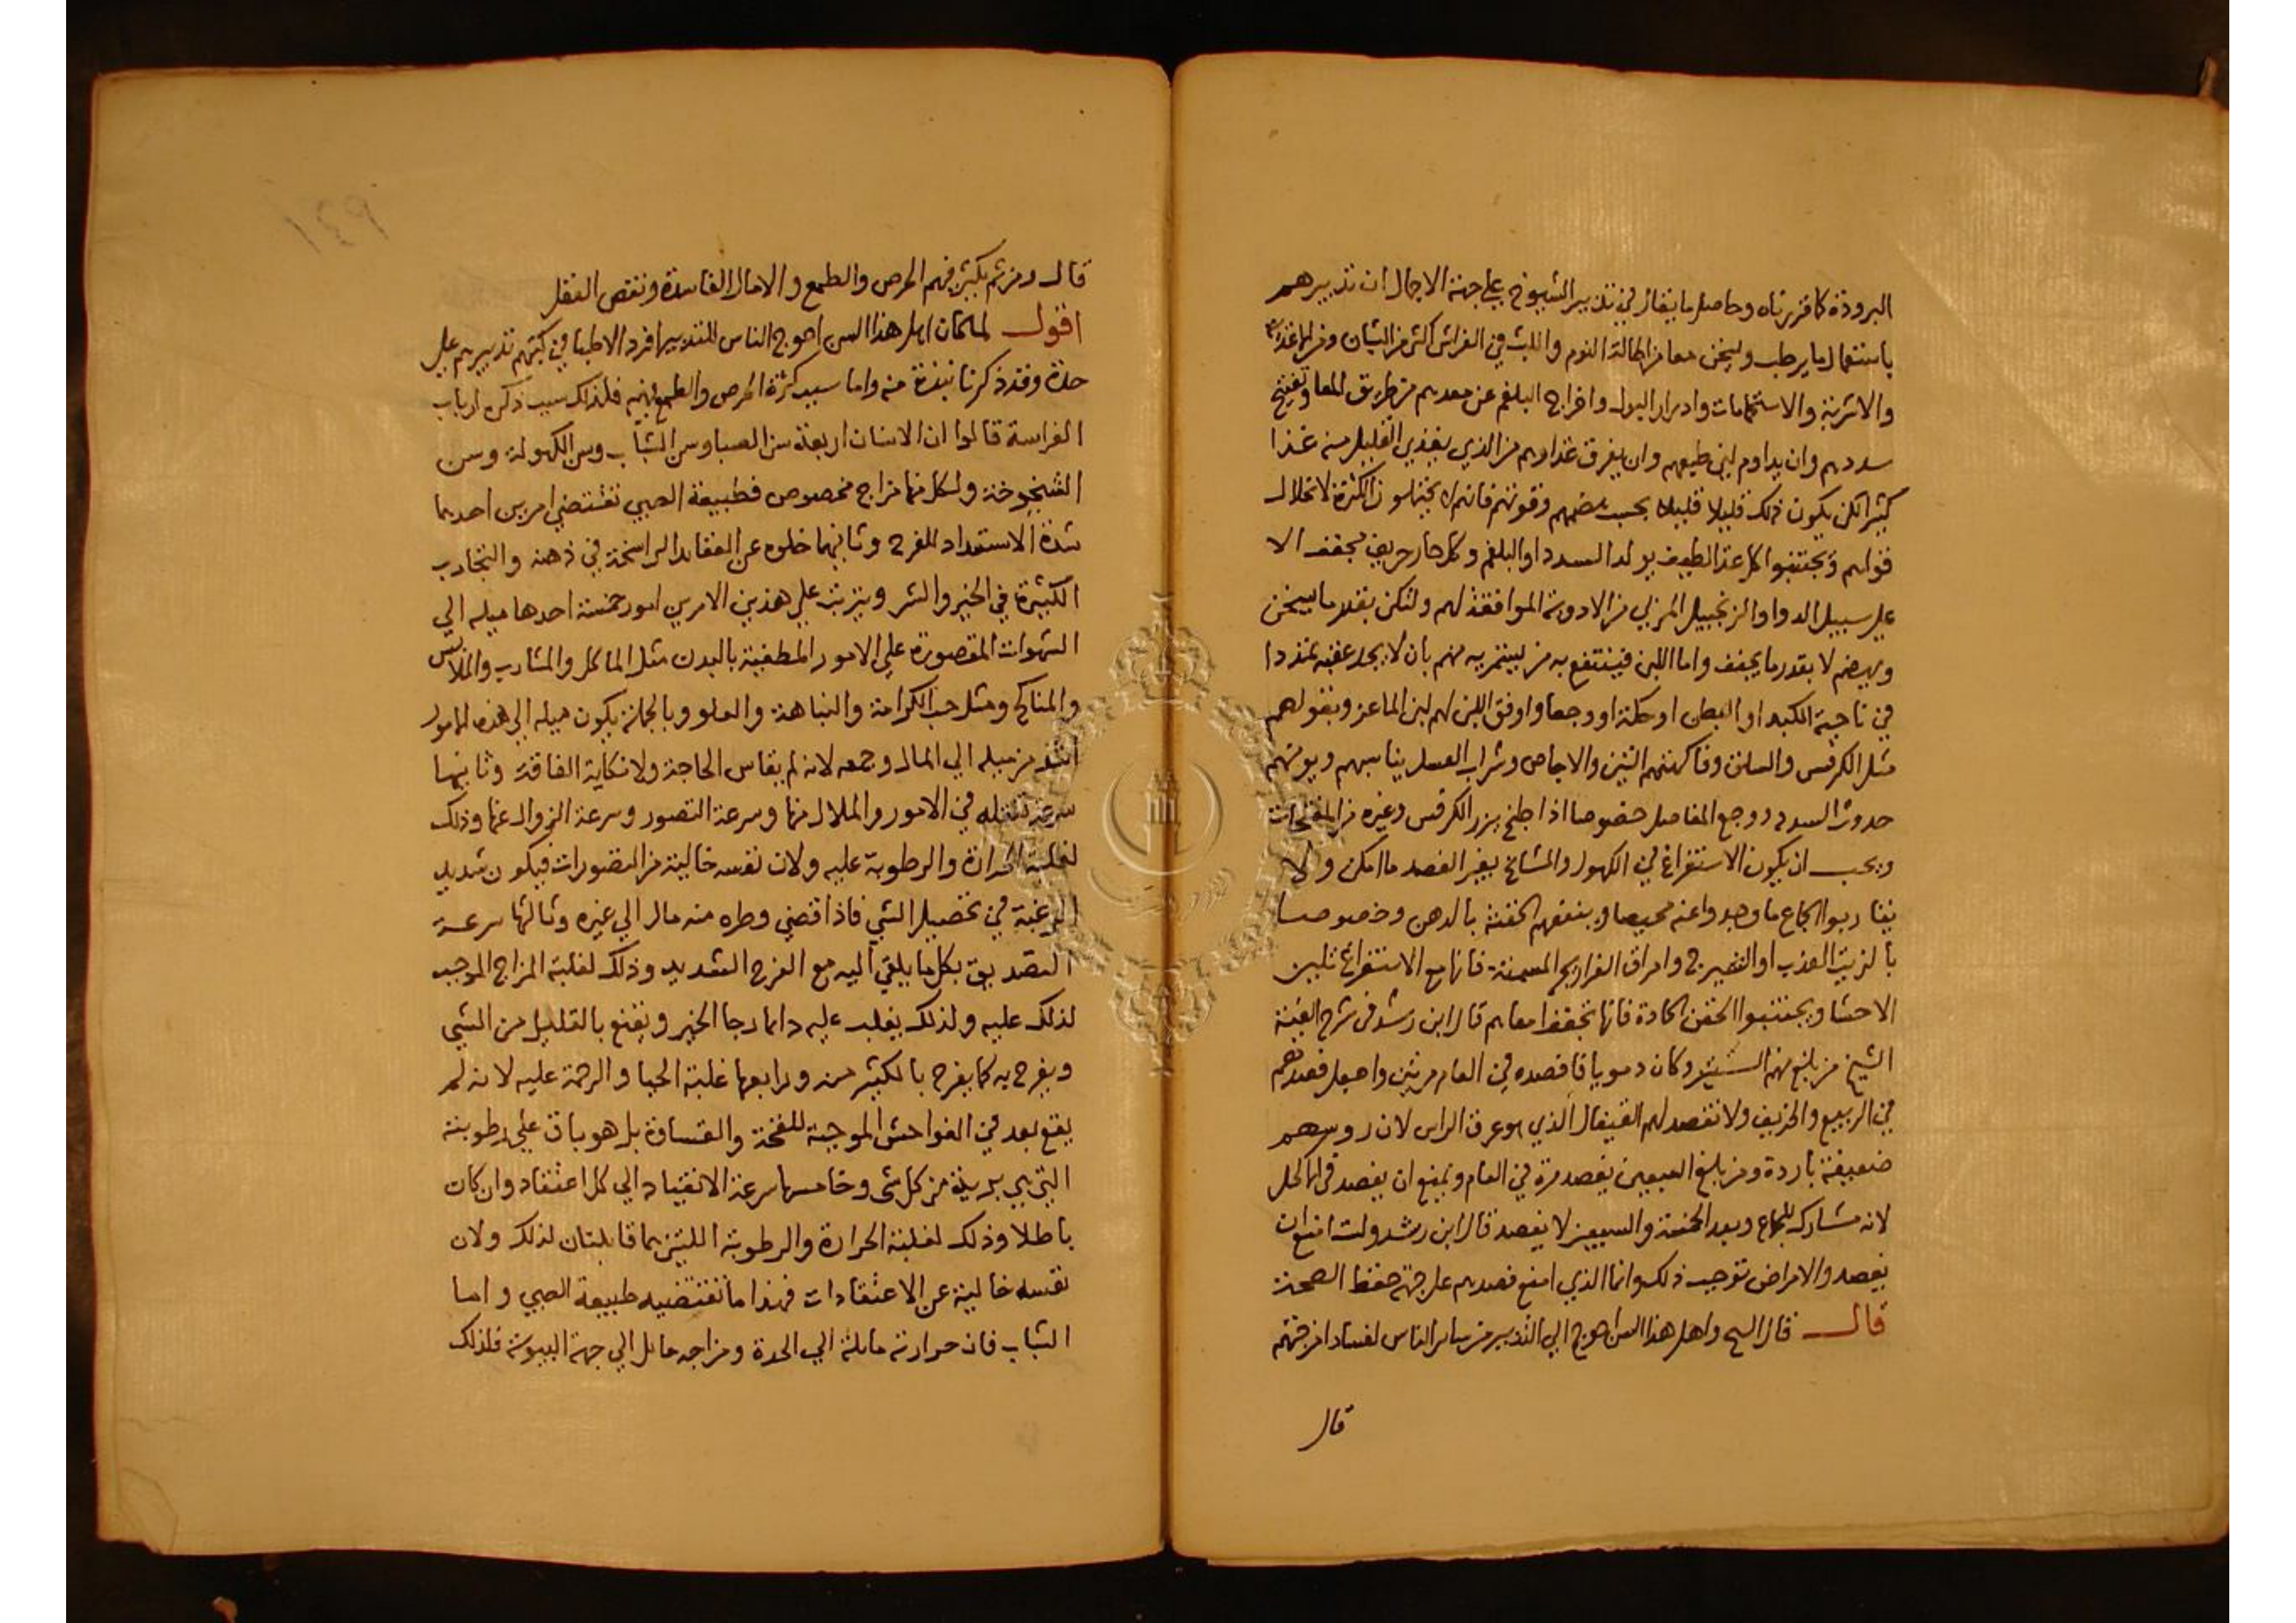 البرودة كما قررناه وحاصل ما يقال في تدبير الشيوخ علي جهة الاجمال ان تدبيرهم
باستعمال ما يرطب ويسخن معا من اطالة النوم واللبث في الفراش اكثر من الشبان ومن الاغذية
والاشربة والاستحمامات وادرار البول واخراج البلغم عن معدهم من طريق المعا وتفتيح
سددهم وان يداوم لين طبعهم وان يفرق غذاوهم من الذي يغذي القليل منه غذا
كثيرا لكن يكون ذلك قليلا قليلا بحسب هضمهم وقوتهم فانهم لا يحتملون الكثرة لانحلال
قواهم ويجتنبوا كل غذا لطيف يولد السدد او البلغم وكل حار حريف مجفف الا
علي سبيل الدوا والزنجبيل المربي من الادوية الموافقة لهم ولتكن بقدر ما يسخن
ويهضم لا بقدر ما يجفف واما اللبن فينتفع به من يستمريه منهم بان لا يجد عقبه تمددا
في ناحية الكبد او البطن او حكة او وجعا واوفق اللبن لهم لبن الماعز وبقولهم
مثل الكرفس والسلق وفاكهتهم التين والاجاص وشراب العسل يناسبهم ويومنهم
حدوث السدد ووجع المفاصل خصوصا اذا طبخ ببزر الكرفس وغيره من المفتحات
ويجب ان يكون الاستفراغ في الكهول والمشايخ بغير الفصد ما امكن ولا
يقاربوا الجماع ما وجدوا عنه محيصا وينفعهم الحقنة بالدهن وخصوصا
بالزيت العذب او الشيرج وامراق الفراريج المسمنة فانها مع الاستفراغ تلين
الاحشا ويجتنبوا الحقن الحادة فانها تجفف امعاهم قال ابن رشد في شرح الفية
الشيخ من بلغ منهم الستين وكان دمويا فافصده في العام مرتين واجعل فصدهم
في الربيع والخريف ولا تفصد لهم القيفال الذي هو عرق الراس لان روسهم
ضعيفة باردة ومن بلغ السبعين يفصد مرة في العام ويمنع ان يفصد في الاكحل
لانه مشارك للجماع وبعد الخمسة والسبعين لا يفصد قال ابن رشد ولست امنع ان
يفصد والامراض توجب ذلك وانما الذي امنع فصدهم علي جهة حفظ الصحة
قال قال الشيخ واهل هذا السن احوج الي التدبير من ساير الناس لفساد امزجتهم
قال
١٤٩
قال ومن ثم يكثر فيهم الحرص والطمع والامال الفاسدة ونقص العقل
اقول لما كان اهل هذا السن احوج الناس للتدبير افرد الاطبا في كتبهم تدبيرهم علي
حدة وقد ذكرنا نبذة منه واما سبب كثرة الحرص والطمع فيهم فلذلك سبب ذكره ارباب
الفراسة قالوا ان الاسنان اربعة سن الصبا وسن الشباب وسن الكهولة وسن
الشيخوخة ولكل منها مزاج مخصوص فطبيعة الصبي تقتضي امرين احدهما
شدة الاستعداد للفرح وثانيهما خلوه عن العقايد الراسخة في ذهنه والتجارب
الكثيرة في الخير والشر ويترتب علي هذين الامرين امور خمسة احدها ميله الي
الشهوات المقصورة علي الامور المطيفة بالبدن مثل الماكل والمشارب والملابس
والمناكح ومثل حب الكرامة والنباهة والعلو وبالجملة يكون ميله الي هذه الامور
اشد من ميله الي المال وجمعه لانه لم يقاس الحاجة ولا نكاية الفاقة وثانيها
سرعة تنقله في الامور والملال منها وسرعة التصور وسرعة الزوال عنها وذلك
لغلبة الحرارة والرطوبة عليه ولان نفسه خالية من التصورات فيكون شديد
الرغبة في تحصيل الشي فاذا قضي وطره منه مال الي غيره وثالثها سرعة
التصديق بكل ما يلقي اليه مع الفرح الشديد وذلك لغلبة المزاج الموجب
لذلك عليه ولذلك يغلب عليه دايما رجا الخير ويقنع بالقليل من الشي
ويفرح به كما يفرح بالكثير منه ورابعها غلبة الحيا والرحمة عليه لانه لم
يقع بعد في الفواحش الموجبة للقحة والقساوة بل هو باق علي رطوبته
التي هي بريئة من كل شي وخامسها سرعة الانقياد الي كل اعتقاد وان كان
باطلا وذلك لغلبة الحرارة والرطوبة اللتين هما قابلتان لذلك ولان
نفسه خالية عن الاعتقادات فهذا ما تقتضيه طبيعة الصبي واما
الشباب فان حرارته مايلة الي الحدة ومزاجه مايل الي جهة اليبوسة فلذلك